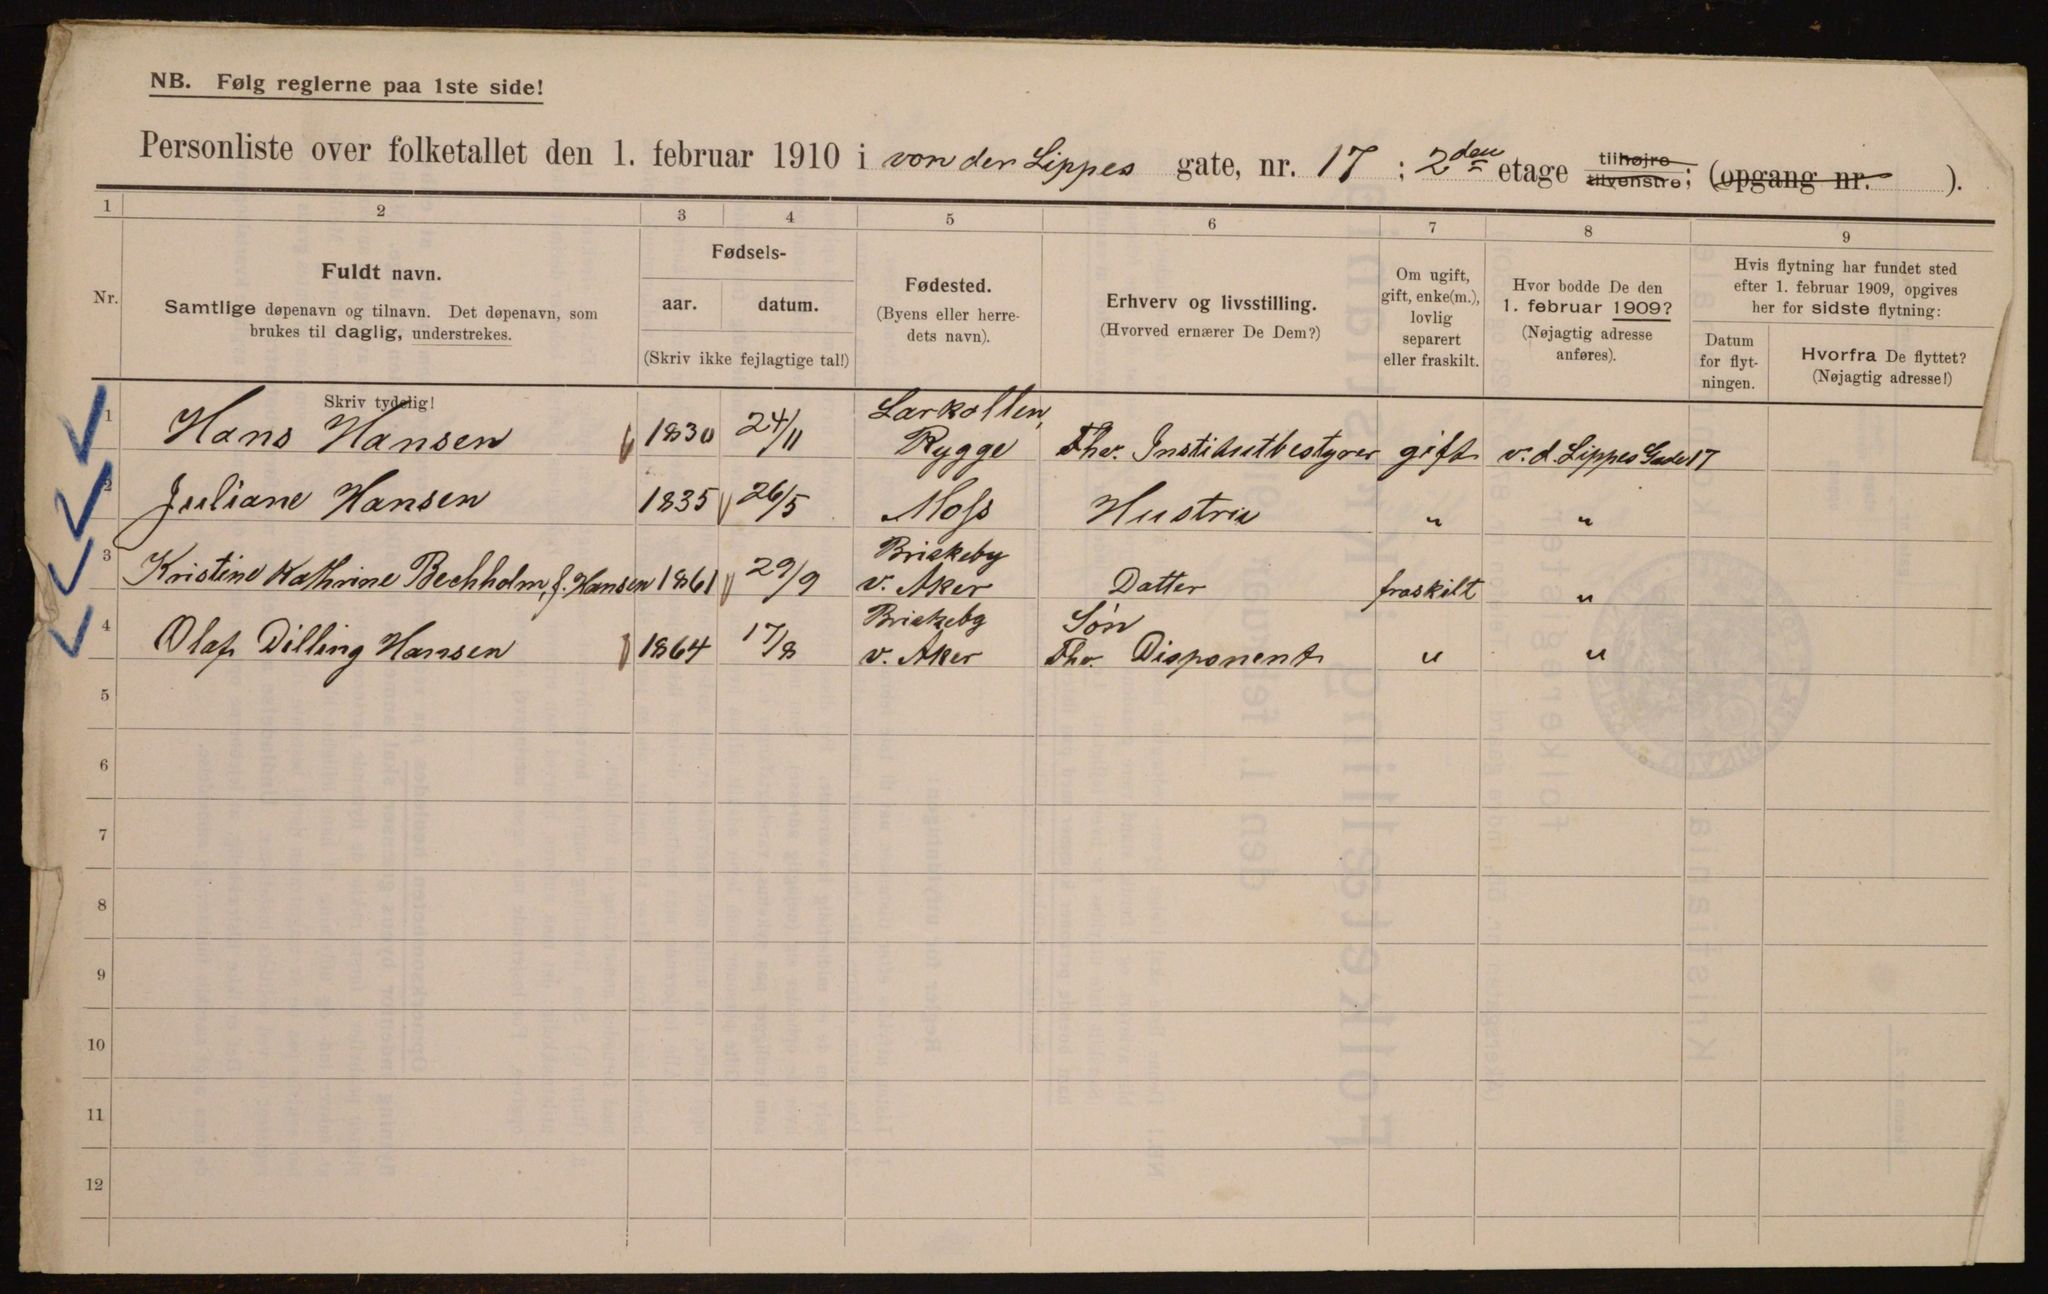 NB. Følg reglerne paa 1ste side!
Personliste over folketallet den 1. februar 1910 i von der Lippes gate, nr. 17 ; 2den etage tilhøjre tilvenstre; (opgang nr. ).
1 2 3 4 5 6 7 8 9
Nr.
Fuldt navn.
Samtlige døpenavn og tilnavn. Det døpenavn, som
brukes til daglig, understrekes.
Skriv tydelig!
Fødsels-
aar. datum.
(Skriv ikke fejlagtige tal!)
Fødested.
(Byens eller herre-
dets navn).
Erhverv og livsstilling.
(Hvorved ernærer De Dem?)
Om ugift,
gift, enke(m.),
lovlig
separert
eller fraskilt.
Hvor bodde De den
1. februar 1909?
(Nøjagtig adresse
anføres).
Hvis flytning har fundet sted
efter 1. februar 1909, opgives
her for sidste flytning:
Datum
for flyt-
ningen.
Hvorfra De flyttet?
(Nøjagtig adresse!)
1 Hans Hansen 1830 24/11 Larkollen, Rygge Fhv. Institutbestyrer gift v. d. Lippes Gade 17
2 Juliane Hansen 1835 26/5 Moss Hustru " "
3 Kristine Kathrine Bechholm, f. Hansen 1861 29/9 Briskeby v. Aker Datter fraskilt "
4 Olaf Dilling Hansen 1864 17/8 Briskeby v. Aker Søn Fhv. Disponent " "
5
6
7
8
9
10
11
12